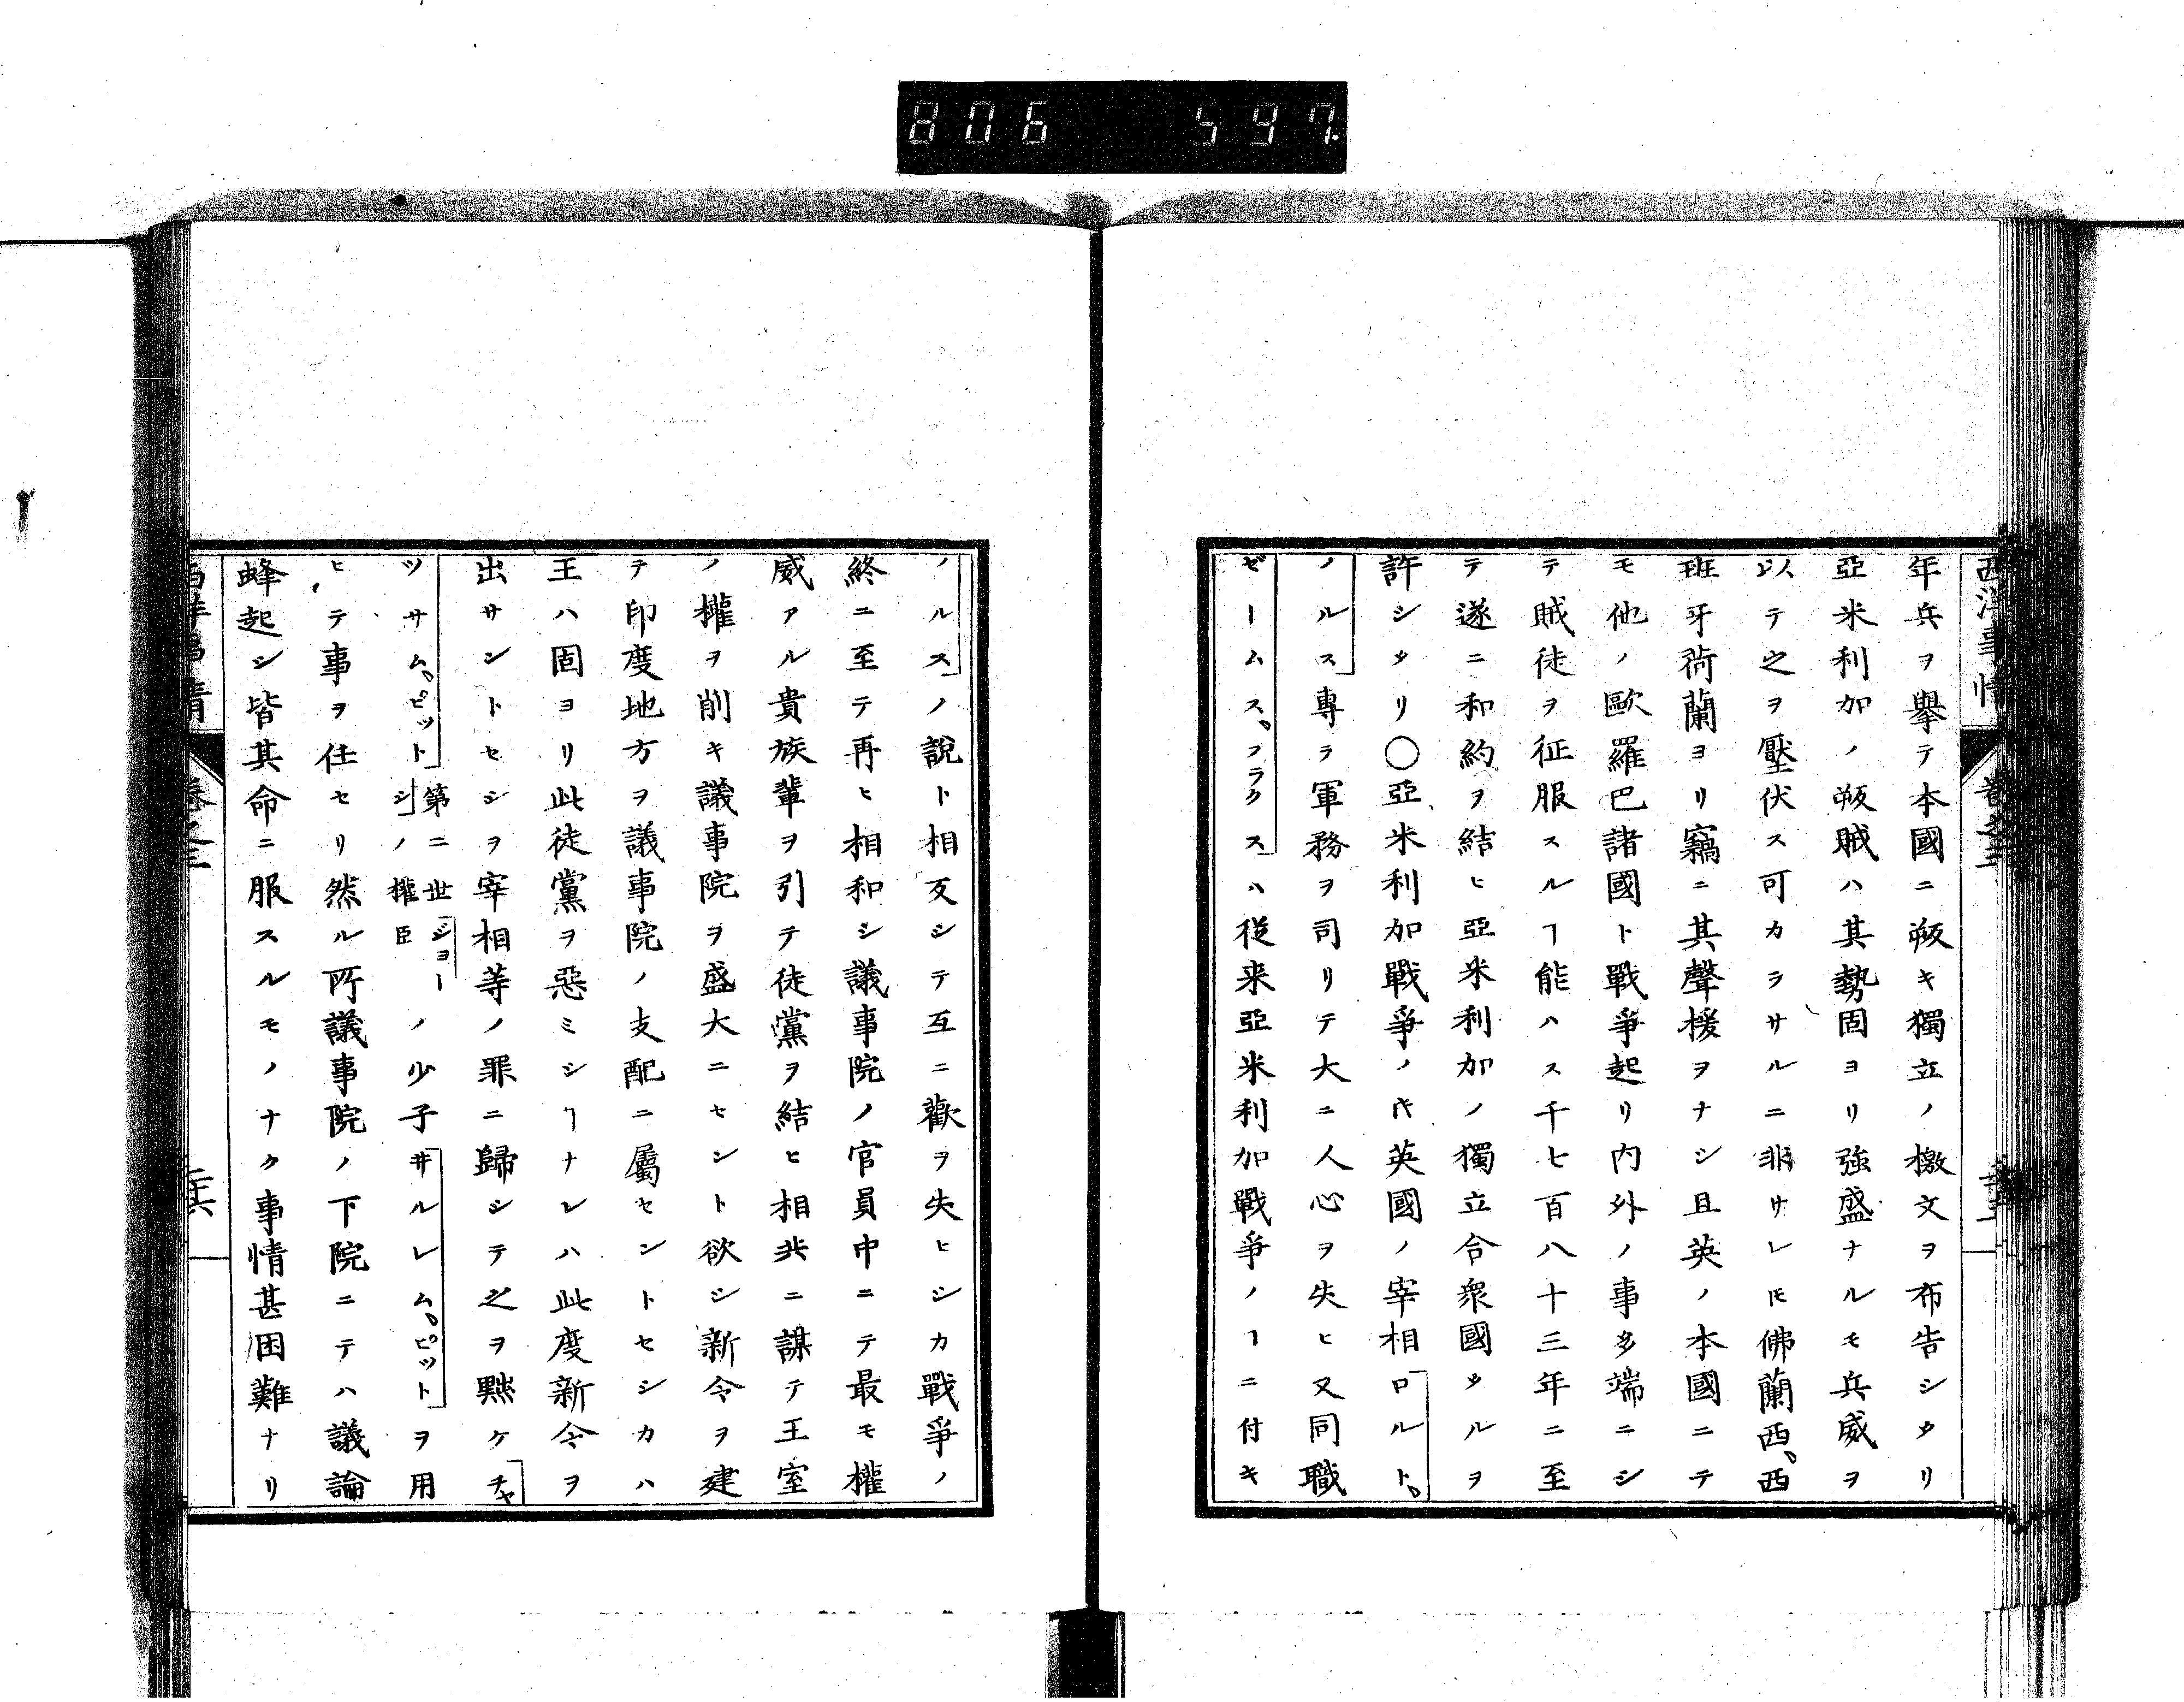 806 597.
西洋事情 卷之三
年兵ヲ擧テ本國ニ叛キ獨立ノ檄文ヲ布告シタリ
亞米利加ノ叛賊ハ其勢固ヨリ強盛ナルモ兵威ヲ
以テ之ヲ壓伏ス可カラサルニ非サレ𪜈佛蘭西、西
班牙荷蘭ヨリ竊ニ其聲援ヲナシ且英ノ本國ニテ
モ他ノ歐羅巴諸國ト戰爭起リ内外ノ事多端ニシ
テ賊徒ヲ征服スルヿ能ハス千七百八十三年ニ至
テ遂ニ和約ヲ結ヒ亞米利加ノ獨立合衆國タルヲ
許シタリ〇亞米利加戰爭ノ𪜈英國ノ宰相ロルト、
ノルス專ラ軍務ヲ司リテ大ニ人心ヲ失ヒ又同職
ゼームス、フラクスハ從来亞米利加戰爭ノヿニ付キ
ノルスノ説ト相反シテ互ニ歡ヲ失ヒシカ戰爭ノ
終ニ至テ再ヒ相和シ議事院ノ官員中ニテ最モ權
威アル貴族輩ヲ引テ徒黨ヲ結ヒ相共ニ謀テ王室
ノ權ヲ削キ議事院ヲ盛大ニセント欲シ新令ヲ建
テ印度地方ヲ議事院ノ支配ニ屬セントセシカハ
王ハ固ヨリ此徒黨ヲ惡ミシヿナレハ此度新令ヲ
出サントセシヲ宰相等ノ罪ニ歸シテ之ヲ黙ケチャ
ツサム、ピット第二世ジョージノ權臣ノ少子ヰルレム、ピットヲ用
ヒテ事ヲ任セリ然ル所議事院ノ下院ニテハ議論
蜂起シ皆其命ニ服スルモノナク事情甚困難ナリ
西洋事情 卷之三